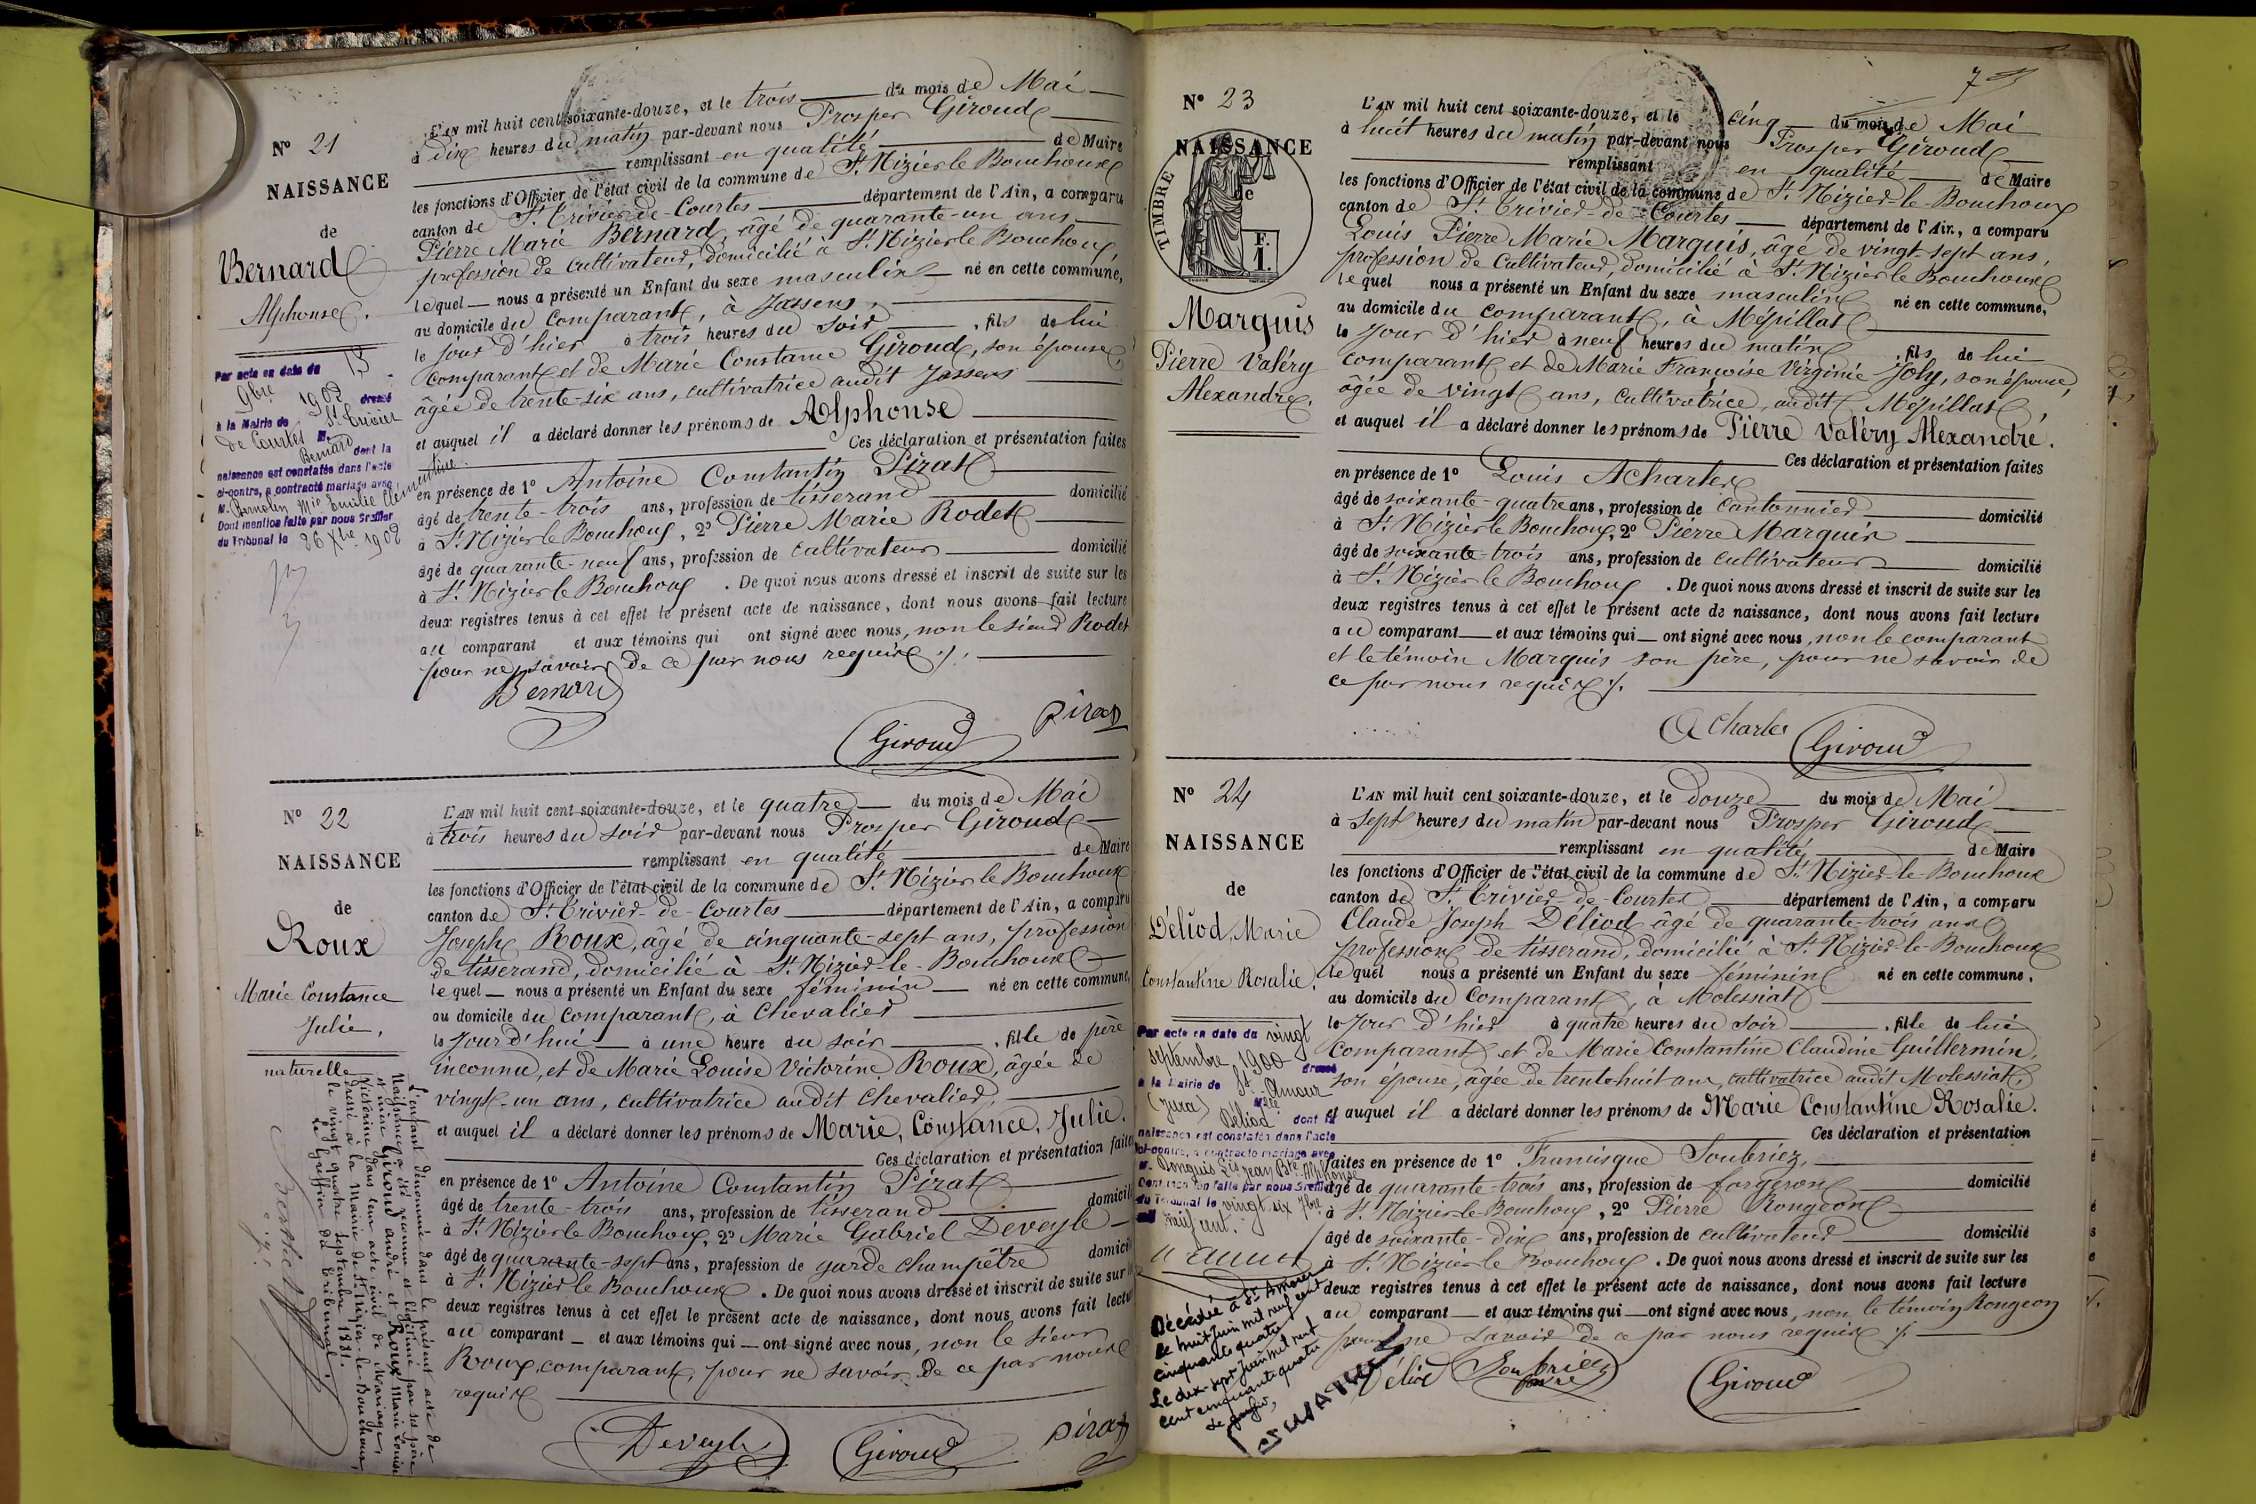 N° 21
NAISSANCE
de
Bernard
Alphonse.
Par acte en date du 13
9bre 1902 dressé
à la Mairie de St Trivier
de Courtes M.
Bernard dont la
naissance est constatée dans l'acte
ci-contre, a contracté mariage avec
M. Mie Emilie Clémentine.
Dont mention faite par nous Greffier
du Tribunal le 26 Xbre 1902
L'AN mil huit cent soixante-douze, et le trois du mois de Mai
à dix heures du matin par-devant nous Prosper Giroud
remplissant en qualité de Maire
les fonctions d'Officier de l'état civil de la commune de St Nizier le Bouchoux
canton de St Trivier-de-Courtes département de l'Ain, a comparu
Pierre Marie Bernard, âgé de quarante-un ans
profession de cultivateur, domicilié à St Nizier le Bouchoux,
lequel nous a présenté un Enfant du sexe masculin né en cette commune,
au domicile du comparant, à Jassens,
le jour d'hier à trois heures du soir, fils de lui
comparant et de Marie Constance Giroud, son épouse
âgée de trente-six ans, cultivatrice audit Jassens
et auquel il a déclaré donner les prénoms de Alphonse
Ces déclaration et présentation faites
en présence de 1° Antoine Constantin Pirat
âgé de trente-trois ans, profession de tisserand domicilié
à St Nizier le Bouchoux, 2° Pierre Marie Rodet
âgé de quarante-neuf ans, profession de cultivateur domicilié
à St Nizier le Bouchoux. De quoi nous avons dressé et inscrit de suite sur les
deux registres tenus à cet effet le présent acte de naissance, dont nous avons fait lecture
au comparant et aux témoins qui ont signé avec nous, non le sieur Rodet
pour ne savoir de ce par nous requis ./.
Bernard
Pirat
Giroud
N° 22
NAISSANCE
de
Roux
Marie Constance
Julie,
naturelle
L'enfant dénommé dans le présent acte de
Naissance, a été reconnu et légitimé par ses père
et mère Giroud andré et Roux Marie Louise
Victorine dans leur acte civil de Mariage,
dressé à la Mairie de St Nizier-le-Bouchoux,
le vingt quatre septembre 1881.
Le Greffier du Tribunal
L'AN mil huit cent soixante-douze, et le quatre du mois de Mai
à trois heures du soir par-devant nous Prosper Giroud
remplissant en qualité de Maire
les fonctions d'Officier de l'état civil de la commune de St Nizier le Bouchoux
canton de St Trivier-de-Courtes département de l'Ain, a comparu
Joseph Roux, âgé de cinquante-sept ans, profession
de tisserand, domicilié à St Nizier-le-Bouchoux
lequel nous a présenté un Enfant du sexe féminin né en cette commune,
au domicile du comparant, à Chevalier
le Jour d'hui à une heure du soir, fille de père
inconnu, et de Marie Louise Victorine Roux, âgée de
vingt-un ans, cultivatrice audit Chevalier,
et auquel il a déclaré donner les prénoms de Marie, Constance, Julie.
Ces déclaration et présentation faites
en présence de 1° Antoine Constantin Pirat
âgé de trente-trois ans, profession de tisserand domicilié
à St Nizier le Bouchoux, 2° Marie Gabriel Deveyle
âgé de quarante-sept ans, profession de garde champêtre domicilié
à St Nizier le Bouchoux. De quoi nous avons dressé et inscrit de suite sur
deux registres tenus à cet effet le présent acte de naissance, dont nous avons fait lecture
au comparant et aux témoins qui ont signé avec nous, non le sieur
Roux, comparant, pour ne savoir de ce par nous
requis
Deveyle
Giroud
Pirat
N° 23
NAISSANCE
de
TIMBRE
F.
1.
Marquis
Pierre Valéry
Alexandre.
L'AN mil huit cent soixante-douze, et le cinq du mois de Mai
à huit heures du matin par-devant nous Prosper Giroud
remplissant en qualité de Maire
les fonctions d'Officier de l'état civil de la commune de St Nizier-le-Bouchoux
canton de St Trivier-de-Courtes département de l'Ain, a comparu
Louis Pierre Marie Marquis, âgé de vingt-sept ans,
profession de Cultivateur, domicilié à St Nizier le Bouchoux
lequel nous a présenté un Enfant du sexe masculin né en cette commune,
au domicile du comparant, à Mépillat
le Jour d'hier à neuf heures du matin, fils de lui
comparant et de Marie Françoise Virginie Joly, son épouse,
âgée de vingt ans, cultivatrice, audit Mépillat,
et auquel il a déclaré donner les prénoms de Pierre Valéry Alexandre.
Ces déclaration et présentation faites
en présence de 1° Louis Acharles
âgé de soixante-quatre ans, profession de cantonnier domicilié
à St Nizier le Bouchoux, 2° Pierre Marquis
âgé de soixante-trois ans, profession de cultivateur domicilié
à St Nizier le Bouchoux. De quoi nous avons dressé et inscrit de suite sur les
deux registres tenus à cet effet le présent acte de naissance, dont nous avons fait lecture
au comparant et aux témoins qui ont signé avec nous, non le comparant
et le témoin Marquis son père, pour ne savoir de
ce par nous requis ./.
Acharles
Giroud
N° 24
NAISSANCE
de
Déliod, Marie
Constantine Rosalie.
Par acte en date du vingt
septembre 1900 dressé
à la Mairie de St Amour
(Jura) Melle
Déliod dont la
naissance est constatée dans l'acte
ci-contre, a contracté mariage avec
M. Donguis Lis Jean Bte Alphonse
Dont mention faite par nous Greffier
du Tribunal le vingt six 7bre
mil neuf cent.
Décédée à St Amour
le huit Juin mil neuf cent
cinquante quatre
Le dix-sept Juin mil neuf
cent cinquante quatre
Le greffier,
L'AN mil huit cent soixante-douze, et le douze du mois de Mai
à sept heures du matin par-devant nous Prosper Giroud
remplissant en qualité de Maire
les fonctions d'Officier de l'état civil de la commune de St Nizier-le-Bouchoux
canton de St Trivier-de-Courtes département de l'Ain, a comparu
Claude Joseph Déliod âgé de quarante-trois ans
profession de tisserand, domicilié à St Nizier-le-Bouchoux
lequel nous a présenté un Enfant du sexe féminin né en cette commune,
au domicile du comparant, à Molessiat
le Jour d'hier à quatre heures du soir, fille de lui
comparant et de Marie Constantine Claudine Guillermin,
son épouse, âgée de trente-huit ans, cultivatrice audit Molessiat,
et auquel il a déclaré donner les prénoms de Marie Constantine Rosalie.
Ces déclaration et présentation
faites en présence de 1° Francisque Soubriez,
âgé de quarante-trois ans, profession de forgeron domicilié
à St Nizier le Bouchoux, 2° Pierre Rongeon
âgé de soixante-dix ans, profession de cultivateur domicilié
à St Nizier le Bouchoux. De quoi nous avons dressé et inscrit de suite sur les
deux registres tenus à cet effet le présent acte de naissance, dont nous avons fait lecture
au comparant et aux témoins qui ont signé avec nous, non, le témoin Rongeon
pour ne savoir de ce par nous requis ./.
Déliod
Giroud